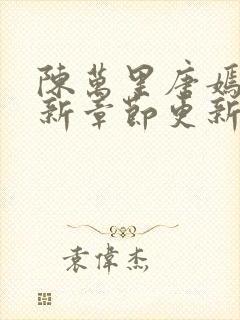 陳萬里唐嫣
新章節更新
袁偉杰